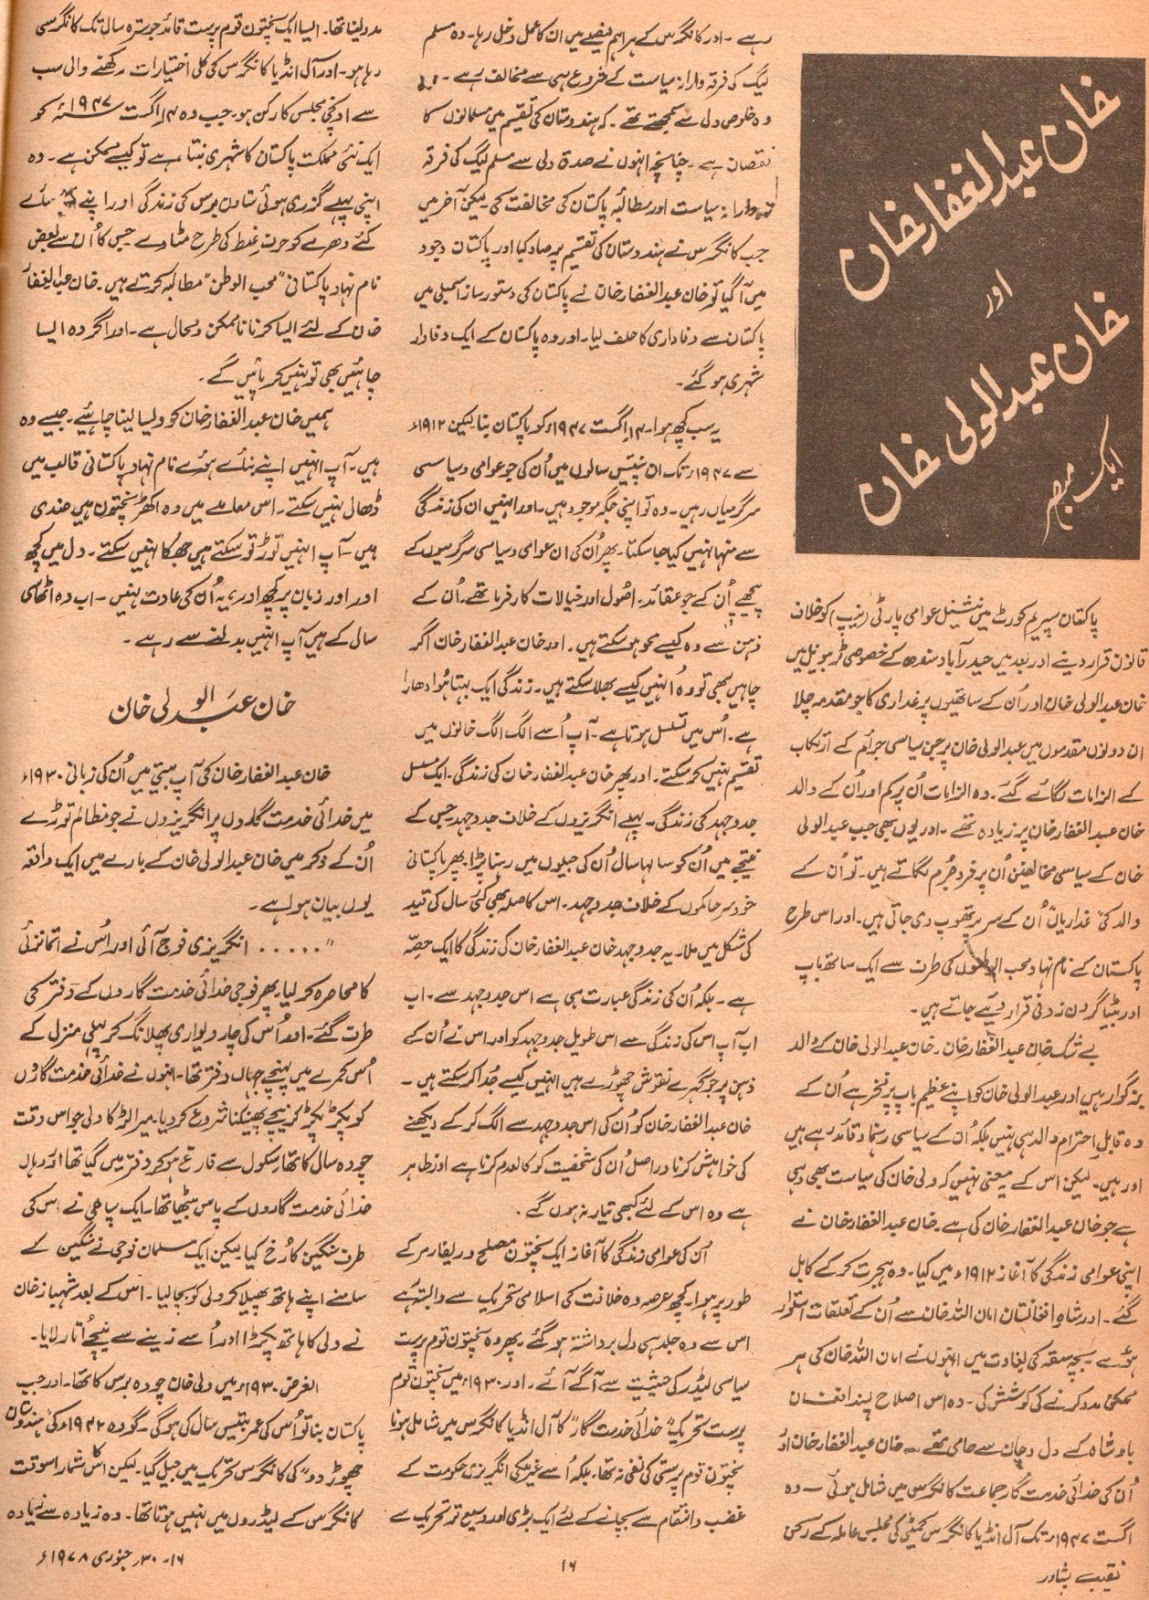 خان عبدالغفار خان
اور
خان عبدالولی خان
ایک مبصر
پاکستان سپریم کورٹ میں نیشنل عوامی پارٹی (نیپ) کو خلاف
قانون قرار دینے اور بعد میں حیدرآباد سندھ کے خصوصی ٹربیونل میں
خان عبدالولی خان اور اُن کے ساتھیوں پر غداری کا جو مقدمہ چلا
ان دونوں مقدموں میں عبدالولی خان پر جن سیاسی جرائم کے ارتکاب
کے الزامات لگائے گئے۔ وہ الزامات اُن پر کم اور اُن کے والد
خان عبدالغفار خان پر زیادہ تھے۔ اور یوں بھی جب عبدالولی
خان کے سیاسی مخالفین اُن پر فردِ جُرم لگاتے ہیں۔ تو اُن کے
والد کی غداریاں اُن کے سر پر تھوپ دی جاتی ہیں۔ اور اس طرح
پاکستان کے نام نہاد محب الوطنوں کی طرف سے ایک ساتھ باپ
اور بیٹا گردن زدنی قرار دیئے جاتے ہیں۔
بے شک خان عبدالغفار خان۔ خان عبدالولی خان کے والد
بزرگوار ہیں اور عبدالولی خان کو اپنے عظیم باپ پر فخر ہے اُن کے
وہ قابلِ احترام والد ہی نہیں بلکہ اُن کے سیاسی رہنما و قائد رہے ہیں
اور ہیں۔ لیکن اس کے یہ معنی نہیں کہ ولی خان کی سیاست بھی وہی
ہے جو خان عبدالغفار خان کی ہے۔ خان عبدالغفار خان نے
اپنی عوامی زندگی کا آغاز ۱۹۱۲ء میں کیا۔ وہ ہجرت کر کے کابل
گئے۔ اور شاہِ افغانستان امان اللہ خان سے اُن کے تعلقات استوار
ہوئے۔ بچہ سقہ کی بغاوت میں انہوں نے امان اللہ خان کی ہر
ممکن مدد کرنے کی کوشش کی۔ وہ اس اصلاح پسند افغان
بادشاہ کے دل و جان سے حامی تھے۔ خان عبدالغفار خان اور
اُن کی خدائی خدمت گار جماعت کانگرس میں شامل ہوئی۔ وہ
اگست ۱۹۴۷ء تک آل انڈیا کانگرس کمیٹی کی مجلسِ عاملہ کے رکن
رہے۔ اور کانگرس کے ہر اہم فیصلے میں ان کا عمل دخل رہا۔ وہ مسلم
لیگ کی فرقہ وارانہ سیاست کے شروع ہی سے مخالف رہے۔
وہ خلوص دلی سے سمجھتے تھے۔ کہ ہندوستان کی تقسیم میں مسلمانوں کا
نقصان ہے۔ چنانچہ انہوں نے صدق دلی سے مسلم لیگ کی فرقہ
وارانہ سیاست اور مطالبۂ پاکستان کی مخالفت کی۔ لیکن آخر میں
جب کانگرس نے ہندوستان کی تقسیم پر صاد کیا اور پاکستان وجود
میں آگیا تو خان عبدالغفار خان نے پاکستان کی دستور ساز اسمبلی میں
پاکستان سے وفاداری کا حلف لیا۔ اور وہ پاکستان کے ایک وفادار
شہری ہو گئے۔
یہ سب کچھ ہوا۔ ۱۴ اگست ۱۹۴۷ء کو پاکستان بنا لیکن ۱۹۱۲ء
سے ۱۹۴۷ء تک ان پینتیس سالوں میں اُن کی جو عوامی و سیاسی
سرگرمیاں رہیں۔ وہ تو اپنی جگہ موجود ہیں۔ اور انہیں ان کی زندگی
سے منہا نہیں کیا جا سکتا۔ پھر اُن کی ان عوامی و سیاسی سرگرمیوں کے
پیچھے اُن کے جو عقائد۔ اصول اور خیالات کارفرما تھے۔ اُن کے
ذہن سے وہ کیسے محو ہو سکتے ہیں۔ اور خان عبدالغفار خان اگر
چاہیں بھی تو وہ اُنہیں کیسے بھلا سکتے ہیں۔ زندگی ایک بہتا ہُوا دھارا
ہے۔ اُس میں تسلسل ہوتا ہے۔ آپ اُسے الگ الگ خانوں میں
تقسیم نہیں کر سکتے۔ اور پھر خان عبدالغفار خان کی زندگی۔ ایک مسلسل
جدوجہد کی زندگی۔ پہلے انگریزوں کے خلاف جدوجہد جس کے
نتیجے میں اُن کو سالہا سال اُن کی جیلوں میں رہنا پڑا۔ پھر پاکستانی
خود سر حاکموں کے خلاف جدوجہد۔ اس کا صلہ بھی کئی سال کی قید
کی شکل میں ملا۔ یہ جدوجہد خان عبدالغفار خان کی زندگی کا ایک حصّہ
ہے۔ بلکہ اُن کی زندگی عبارت ہی ہے اس جدوجہد سے۔ اب
اب آپ اس کی زندگی سے اس طویل جدوجہد کو اور اس نے اُن کے
ذہن پر جو گہرے نقوش چھوڑے ہیں انہیں کیسے جُدا کر سکتے ہیں۔
خان عبدالغفار خان کو اُن کی اس جدوجہد سے الگ کر کے دیکھنے
کی خواہش کرنا دراصل اُن کی شخصیت کو کالعدم کرنا ہے اور ظاہر
ہے وہ اس کے لئے کبھی تیار نہ ہوں گے۔
اُن کی عوامی زندگی کا آغاز ایک پختون مصلح و ریفارمر کے
طور پر ہوا۔ کچھ عرصہ وہ خلافت کی اسلامی تحریک سے وابستہ رہے
اس سے وہ جلد ہی دل برداشتہ ہو گئے۔ پھر وہ پختون قوم پرست
سیاسی لیڈر کی حیثیت سے آگے آئے۔ اور ۱۹۳۰ء میں پختون قوم
پرست تحریک "خدائی خدمت گار" کا آل انڈیا کانگرس میں شامل ہونا
پختون قوم پرستی کی نفی نہ تھا۔ بلکہ اُسے غیر ملکی انگریزی حکومت کے
غضب و انتقام سے بچانے کے لئے ایک بڑی اور وسیع تر تحریک سے
مدد لینا تھا۔ ایسا ایک پختون قوم پرست قائد جو سترہ سال تک کانگرسی
رہا ہو۔ اور آل انڈیا کانگرس کی کلی اختیارات رکھنے والی سب
سے اونچی مجلس کا رکن ہو۔ جب وہ ۱۴ اگست ۱۹۴۷ء کو
ایک نئی مملکت پاکستان کا شہری بنتا ہے تو کیسے ممکن ہے۔ وہ
اپنی پہلے گزری ہوئی ستاون برس کی زندگی اور اپنے سارے
کئے دھرے کو حرفِ غلط کی طرح مٹا دے جس کا اُن سے بعض
نام نہاد پاکستانی "محب الوطن" مطالبہ کرتے ہیں۔ خان عبدالغفار
خان کے لئے ایسا کرنا ناممکن و محال ہے۔ اور اگر وہ ایسا
چاہئیں بھی تو نہیں کر پائیں گے۔
ہمیں خان عبدالغفار خان کو ویسا لینا چاہئیے۔ جیسے وہ
ہیں۔ آپ انہیں اپنے بنائے ہوئے نام نہاد پاکستانی قالب میں
ڈھال نہیں سکتے۔ اس معاملے میں وہ اکھڑ پختون ہیں ضدی
ہیں۔ آپ انہیں توڑ تو سکتے ہیں جھکا نہیں سکتے۔ دل میں کچھ
اور اور زبان پر کچھ اور، یہ اُن کی عادت نہیں۔ اب وہ اٹھاسی
سال کے ہیں آپ انہیں بدلنے سے رہے۔
خان عبدالولی خان
خان عبدالغفار خان کی آپ بیتی میں اُن کی زبانی ۱۹۳۰ء
میں خدائی خدمت گاروں پر انگریزوں نے جو مظالم توڑے
اُن کے ذکر میں خان عبدالولی خان کے بارے میں ایک واقعہ
یوں بیان ہوا ہے۔
"..... انگریزی فوج آئی اور اُس نے اتمانزئی
کا محاصرہ کر لیا۔ پھر فوجی خدائی خدمت گاروں کے دفتر کی
طرف گئے۔ اور اُس کی چار دیواری پھلانگ کر پہلی منزل کے
اُس کمرے میں پہنچے جہاں دفتر تھا۔ انہوں نے خدائی خدمت گاروں
کو پکڑ پکڑ کر نیچے پھینکنا شروع کر دیا۔ میرا لڑکا ولی جو اس وقت
چودہ سال کا تھا سکول سے فارغ ہو کر دفتر میں گیا تھا اور وہاں
خدائی خدمت گاروں کے پاس بیٹھا تھا۔ ایک سپاھی نے اس کی
طرف سنگین کا رُخ کیا لیکن ایک مسلمان فوجی نے سنگین کے
سامنے اپنے ہاتھ پھیلا کر ولی کو بچا لیا۔ اس کے بعد شہباز خان
نے ولی کا ہاتھ پکڑا اور اُسے زینے سے نیچے اُتار لایا۔
الغرض ۱۹۳۰ء میں ولی خان چودہ برس کا تھا۔ اور جب
پاکستان بنا تو اُس کی عمر بتیس سال کی ہوگی۔ گو وہ ۱۹۴۲ء کی "ہندوستان
چھوڑ دو" کی کانگرس تحریک میں جیل گیا۔ لیکن اُس کا شمار اسوقت
کانگرس کے لیڈروں میں نہیں ہوتا تھا۔ وہ زیادہ سے زیادہ
نقیب پشاور
۱۶
۱۶۔۳۰؍ جنوری ۱۹۷۸ء